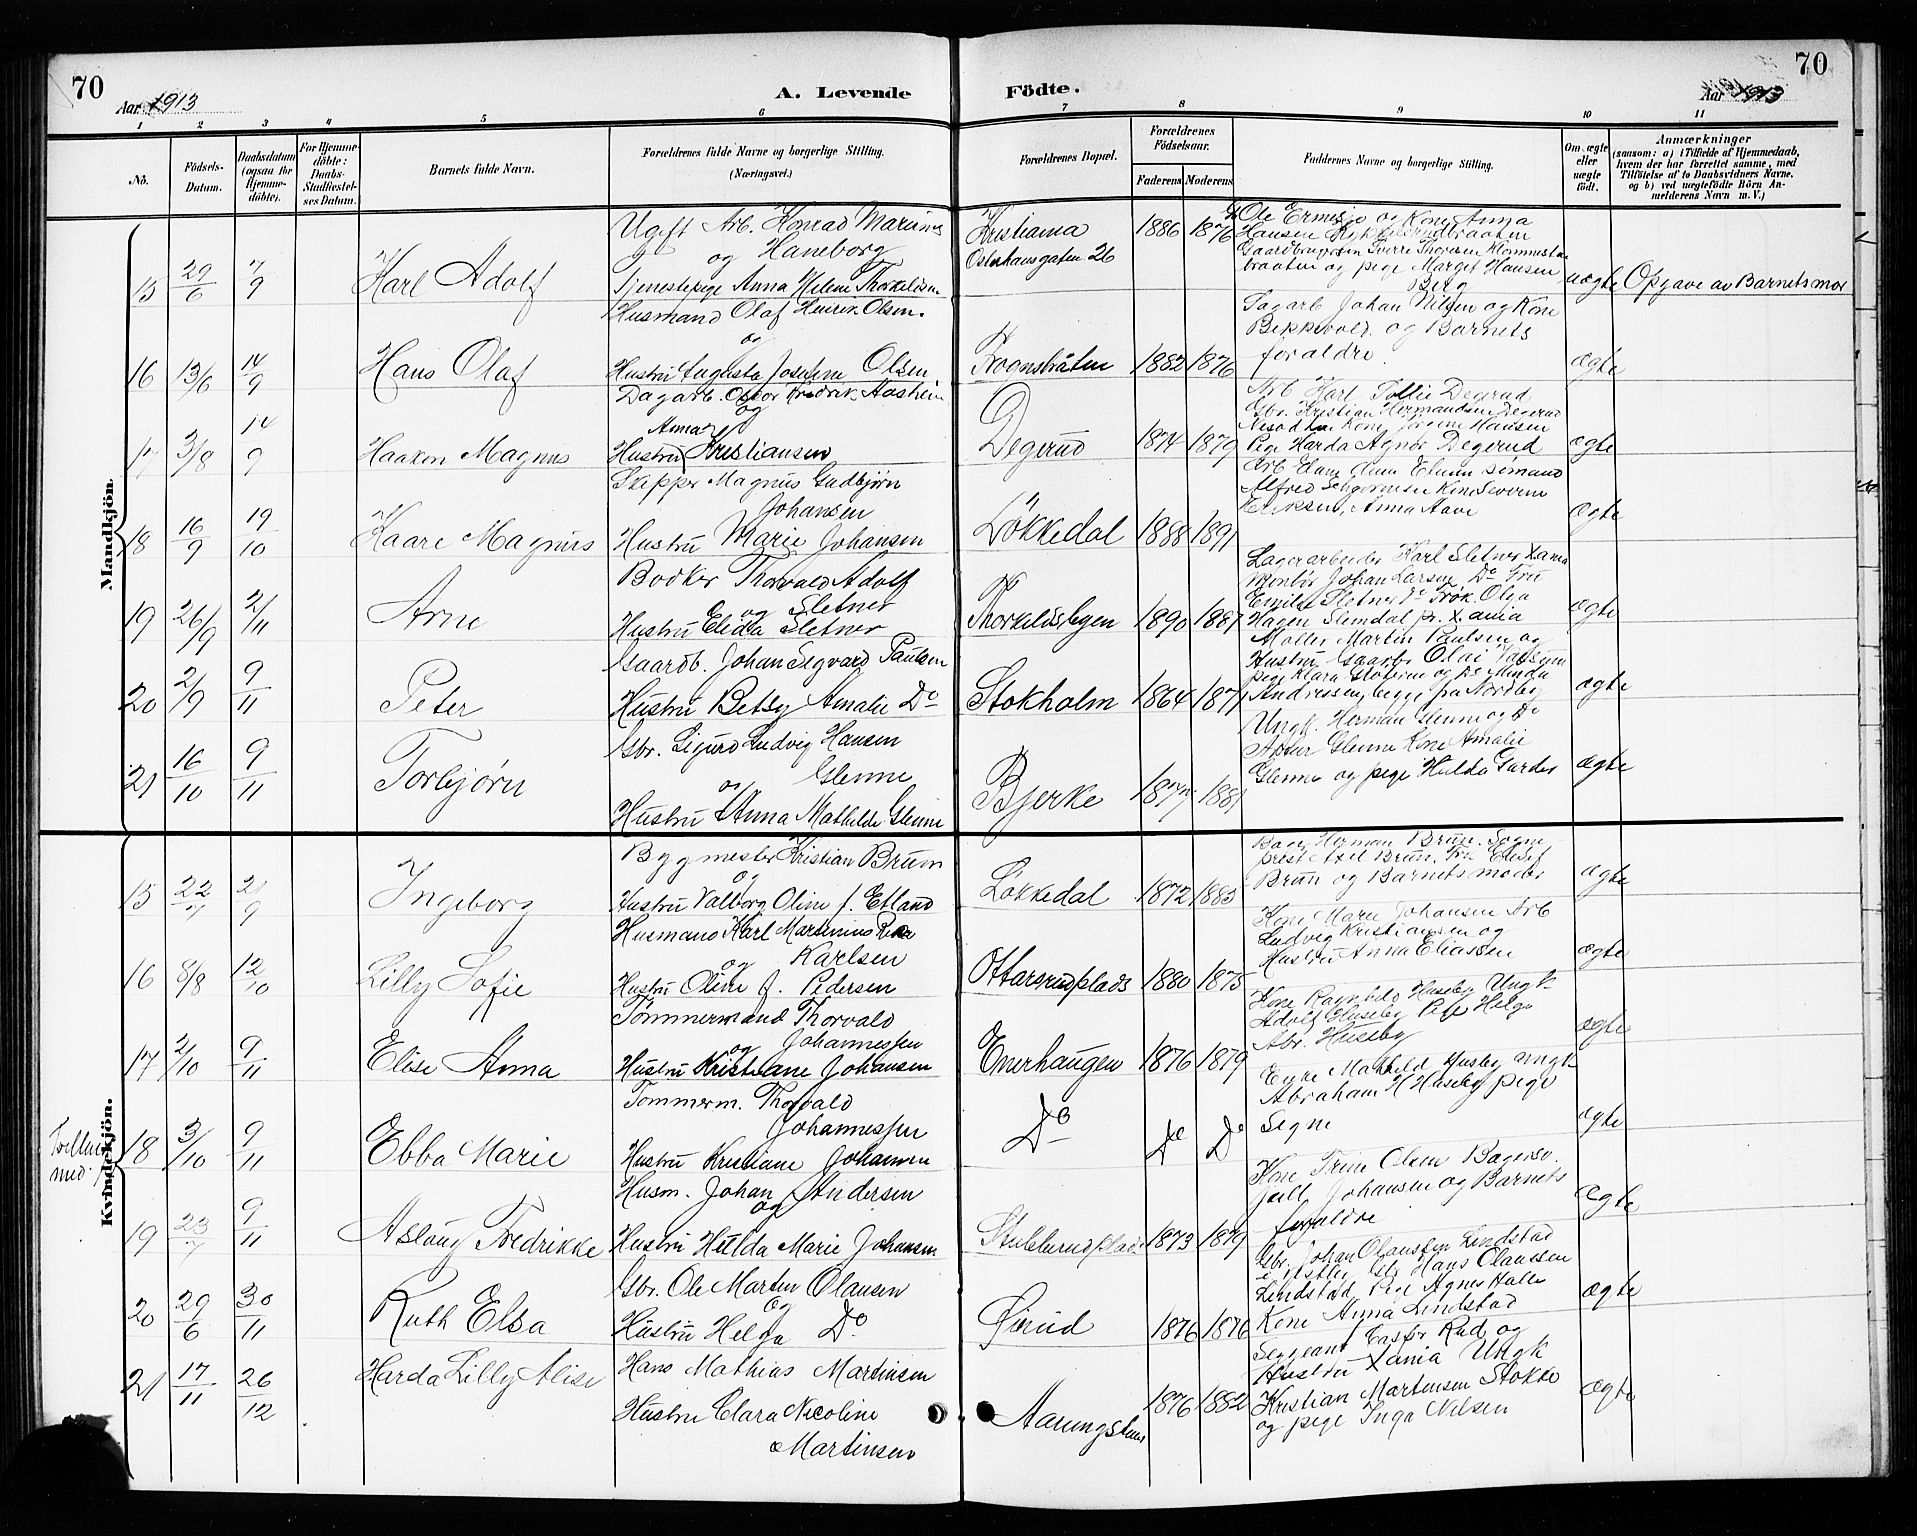 70
Aar 1913
A. Levende
Födte.
Aar 1913
70
1 2 3 4 5 6 7 8 9 10 11
No.
Födsels-Datum.
Daabsdatum (ogsaa for Hjemmedöbte).
For Hjemmedöbte: Daabs-Stadfæstelses Datum.
Barnets fulde Navn.
Forældrenes fulde Navne og borgerlige Stilling. (Næringsvei.)
Forældrenes Bopæl.
Forældrenes Födselsaar.
Faderens Moderens
Faddernes Navne og borgerlige Stilling.
Om ægte eller uægte födt.
Anmærkninger
(saasom: a) i Tilfælde af Hjemmedaab, hvem der har forrettet samme, med Tilföielse af to Daabsvidners Navne, og b) ved uægtefödte Börn Anmelderens Navn m. V.)
Mandkjön.
15 29/6 7/9 Karl Adolf
Ugift Arb. Konrad Marinus
Haneborg
og
Tjenestepige Anna Helene Thorkelsen
Kristiania
Osterhausgaten 26
1886 1876
Ole Ermesjø og Kone Anna
Hansen
Gaardbruger Sverre Thoresen
braaten og pige Marget Hansen
Berg
uægte Opgave av Barnets mor
16 13/6 14/9 Hans Olaf
Husmand Olaf Henrik Olsen.
og
Hustru Augusta Josefine Olsen
Krognstråten 1882 1876
Dagarb Johan Nilsen og Kone
Bekkevold og Barnets
foraldre.
ægte
17 3/8 14/9 Haakon Magnus
Dagarb. Oskar Fredrik Aasheim
og
Anna
Hustru Kristiansen
Degerud 1874 1879
Arb Karl Tollie Degrud
Gbr. Kristian Hermandsen Degerud
Kone Jørgine Hansen
Pige Harda Agnes Degerud
ægte
18 16/9 19/10 Kaare Magnus
Skipper Magnus Gudbjørn
Johansen
Hustru Marie Johansen
Løkkedal 1888 1891
Alfred Kone Severine
Eriksen, Anna Aave
ægte
19 26/9 2/11 Arne
Bødker Thorvald Adolf
og Sletner
Hustru Elida Sletner
Thorkildsbyen 1890 1887
Lagerarbeider Karl Sletner Xania
Montør Johan Larsen Do Fru
Emilie Sletner do Frøk. Olga
Hagen Slemdal pr. Xania
ægte
20 2/9 9/11 Peter
Gaardb. Johan Segvard Paulsen
Hustru Betsy Amalie Do
Stokholm 1864 1871
Møller Martin Paulsen og
Hustru Gaarbr Olai
pige Klara og do Minda
Andressen, begge fra Nordby
ægte
21 16/10 9/11 Torbjørn
Gbr. Sigurd Ludvig Hansen
Glenne
og
Hustru Anna Mathilde Glenne
Bjerke 1877 1881
Ungk. Herman Glenne og Do
Artur Glenne Kone Amalie
Glenne og pige Hulda Garder
ægte
Kvindekjön.
15 22/7 21/9 Ingeborg
Bygmester Kristian Brun
og
Hustru Valborg Oline f. Etland
Løkkedal 1872 1885
Herman Brun. Sogne
prest Axel Brun. Fru Elisef
Brun og Barnets moder
ægte
16 8/8 12/10 Lilly Sofie
Husmand Karl Martinius
og Karlsen
Hustru Oline f. Pedersen
Ottarsrudplads 1880 1875
Kone Marie Johansen Arb
Ludvig Kristiansen og
Hustru Anna Eliassen
ægte
17 2/10 9/11 Elise Anna
Tømmermand Thorvald
og Johannessen
Hustru Kristiane Johansen
Enerhaugen 1876 1879
Kone Ragnhild Huseby Ungk
Adolf Huseby Pige Helga
Abr. Huseby
ægte
Tvilling med
18 3/10 9/11 Ebba Marie
Tømmerm. Thorvald
Johannessen
Hustru Kristiane Johansen
Do Do Do
Enke Mathild Husby Ungk
Abraham H Huseby pige
Signe
ægte
19 23/7 9/11 Aslaug Fredrikke
Husm. Johan Andersen
og
Hustru Hulda Marie Johansen
Stubberudplads 1873 1879
Kone Trine Olsen Bagersv.
Johansen og Barnets
foraldre
Ægte
20 29/6 30/11 Ruth Elsa
Gbr. Ole Martin Olausen
og
Hustru Helga Do
Øierud 1876 1876
Gbr. Johan Olaussen Lindstad
Hans Olaussen
Lindstad Pige Agnes Halle
Kone Anna Lindstad
ægte
21 17/11 26/12 Harda Lilly Alise
Hans Mathias Martinsen
Hustru Clara Nicoline
Martinsen
Aarungstuen 1876 1882
Sergeant Casper Rud og
Hustru Xania Ungk
Kristian Martensen Stokke
og pige Inga Nilsen
ægte